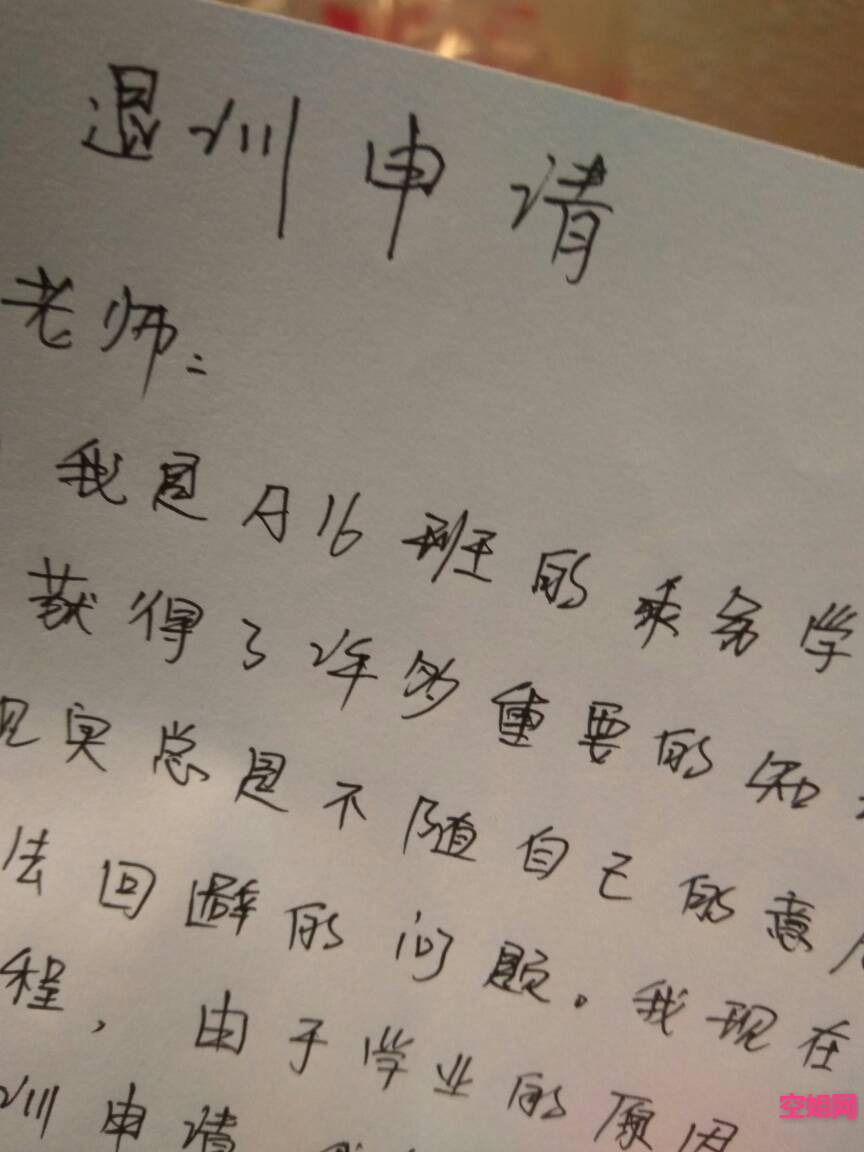 退训申请
老师:
我是A16班的乘务学
获得了许多重要的知
现实总是不随自己的意
法回避的问题。我现在
程,由于学业的原因
训申请
空姐网